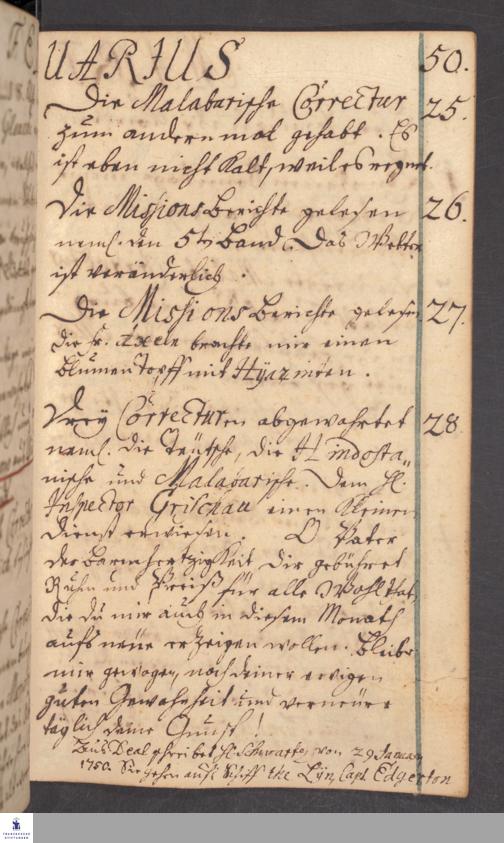 UARIUS 50.
Die Malabarische Correctur 25.
zum andern mal gehabt. Es
ist eben nicht kalt, weil es regnet.
Die Missions Berichte gelesen 26.
neml. den 5t Band. Das Wetter
ist veränderlich.
Die Missions Berichte gelesen 27.
die Fr. Axeln brachte mir einen
Blumen Topff mit Hyazinten.
Drey Correcturen abgewahrtet 28.
neml. die Teutsche, die Hindosta„
nische und Malabarische. Dem H.
Inspector Grischau einen kleinen
Dienst erwiesen. O Vater
der Barmhertzigkeit dir gebühret
Ruhm und Preiß für alle Wohlthat,
die du mir auch in diesem Monath
aufs neüe erzeigen wollen. Bleibe
mir gewogen, nach deiner ewigen
guten Gewohnheit und verneüre
täglich deine Gunst!
Aus Deal schreibet H. Schwartz, von 29 Januar
1750. Sie gehen aufs Schiff the Lyn, Capt. Edgerton
FRANCKESCHE
STIFTUNGEN